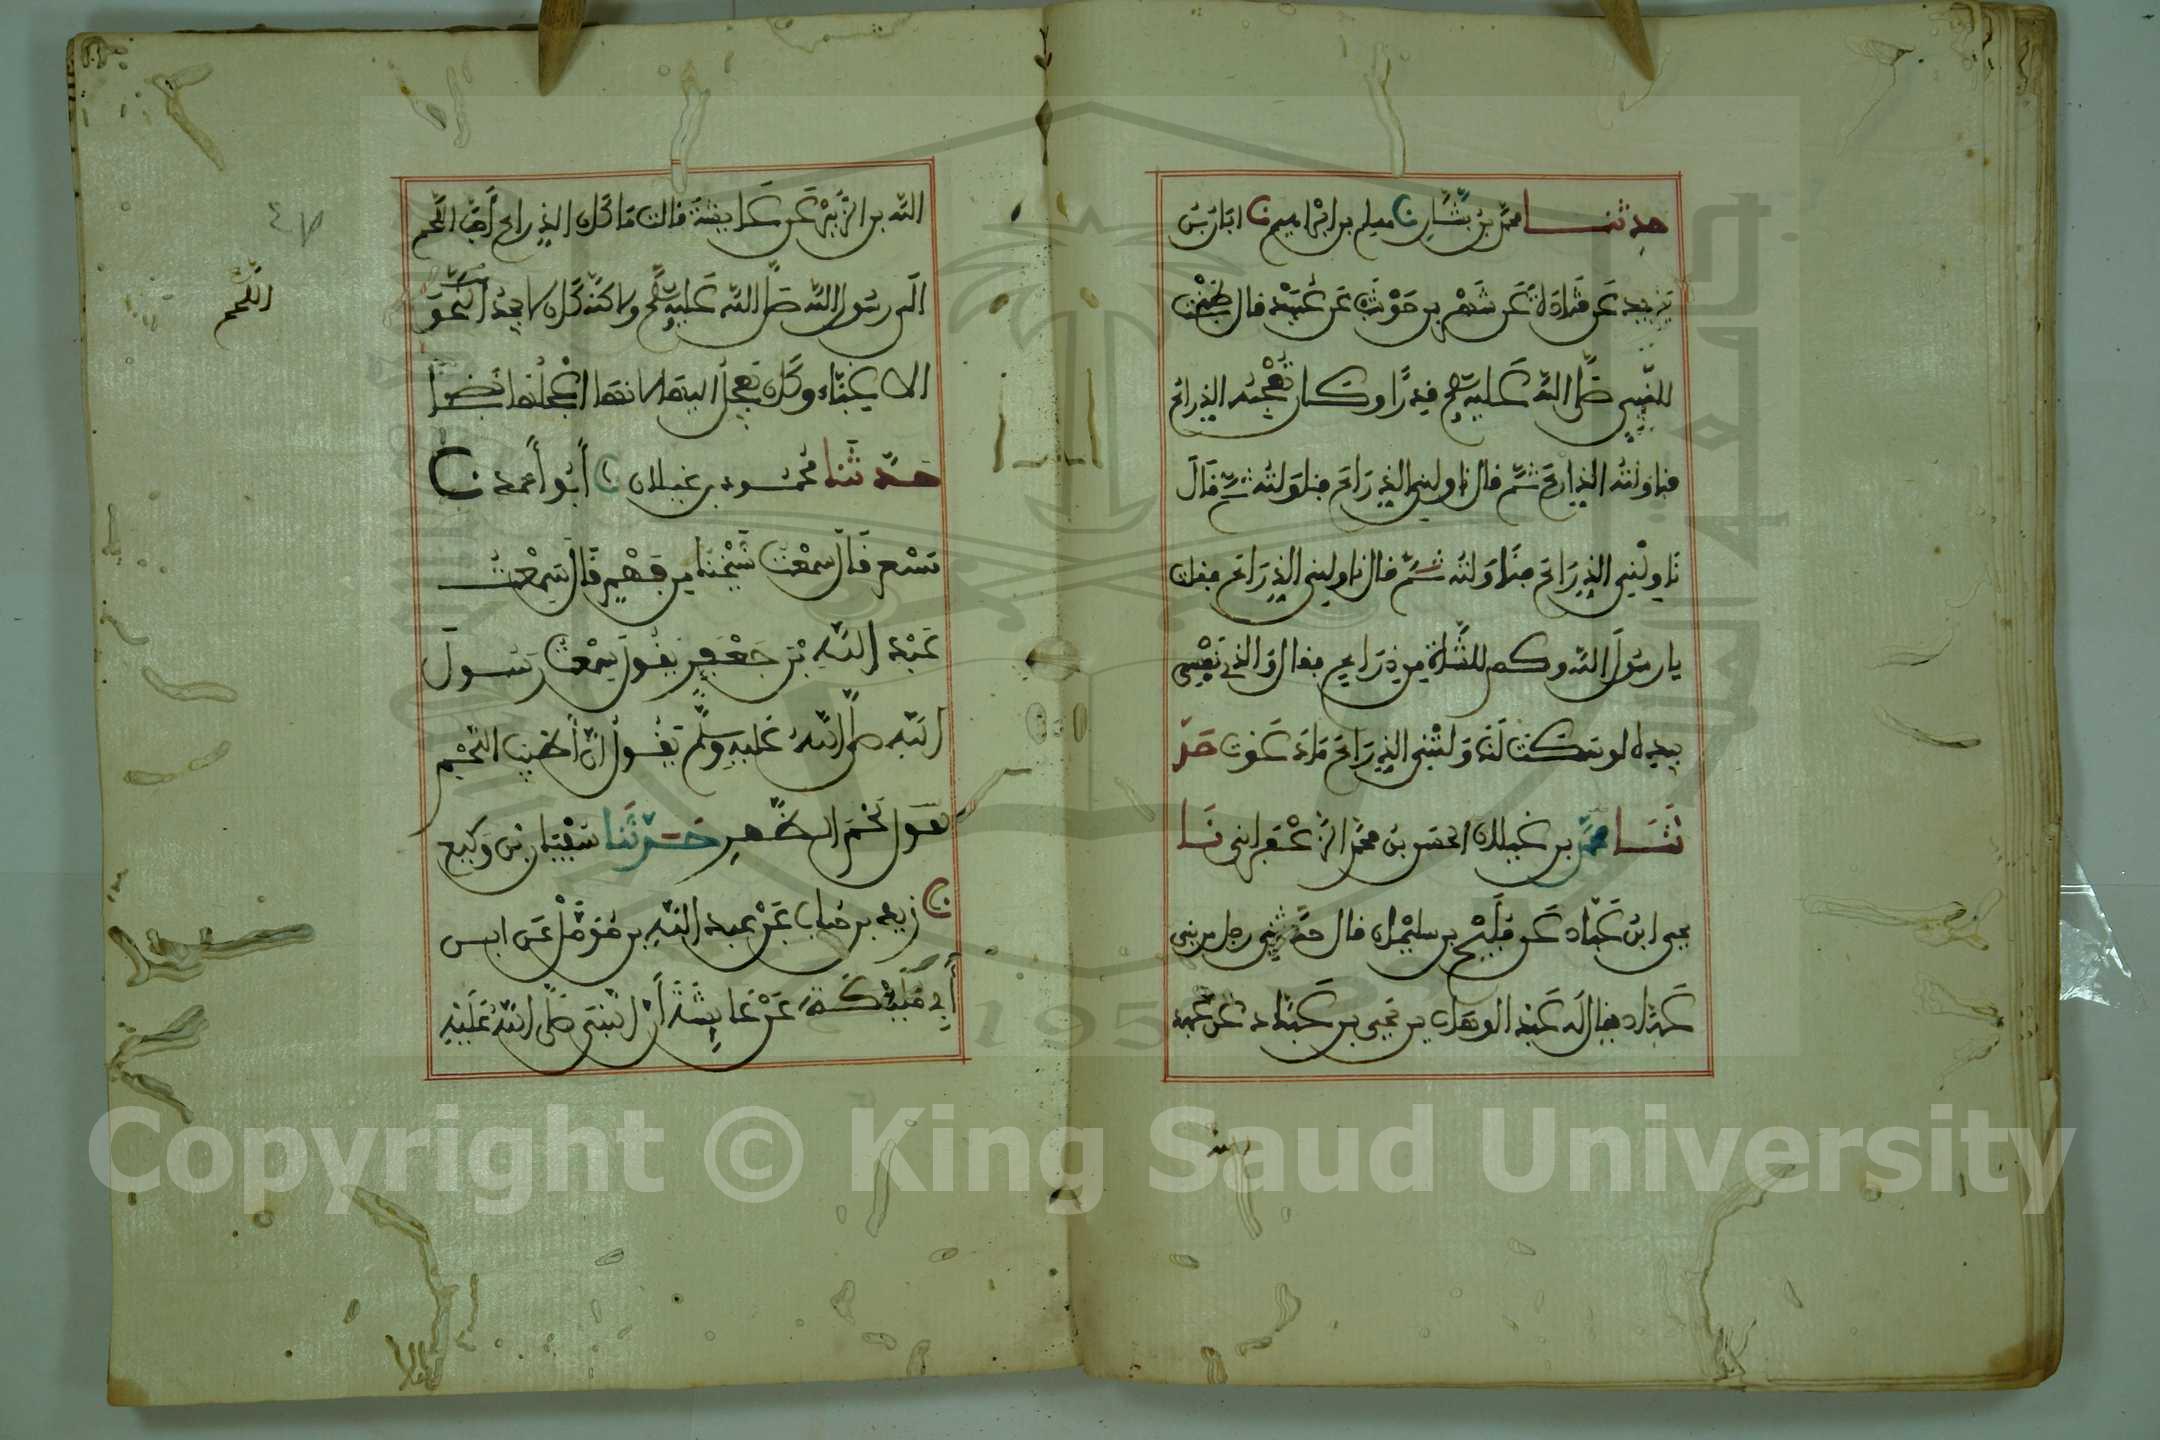 حدثنا محمد بن بشار نا مسلم بن ابراهيم نا ابان بن
يزيد عن قتادة عن شهر بن حوشب عن عبيد قال طبخت
للنبي صلى الله عليه وسلم قدرا وكان تعجبه الذراع
فناولته الذراع ثم قال ناولني الذراع فناولته ثم قال
ناولني الذراع فناولته ثم قال ناولني الذراع فقلت
يا رسول الله وكم للشاة من ذراع فقال والذي نفسي
بيده لو سكت لناولتني الذراع ما دعوت حد
ثنا محمد بن غيلان الحسن بن محمد الزعفراني نا
يحيى ابن عباد عن فليح بن سليمان قال حدثني رجل من بني
عباد يقال له عبد الوهاب بن يحيى بن عباد عن عبد
الله بن الزبير عن عايشة قالت ما كان الذراع أحب اللحم
الى رسول الله صلى الله عليه وسلم ولاكنه كان لا يجد اللحم
الا غبا وكان يعجل اليها لانها اعجلها نضجا
حدثنا محمود بن غيلان نا أبو أحمد نا
مسعر قال سمعت شيخنا من فهم قال سمعت
عبد الله بن جعفر يقول سمعت رسول
الله صلى الله عليه وسلم يقول ان أطيب اللحم
لحم الظهر حدثنا سفيان بن وكيع
نا زيد بن حباب عن عبد الله بن مومل عن ابي
أبي مليكة عن عايشة أن النبي صلى الله عليه
اللحم
Copyright © King Saud University
195